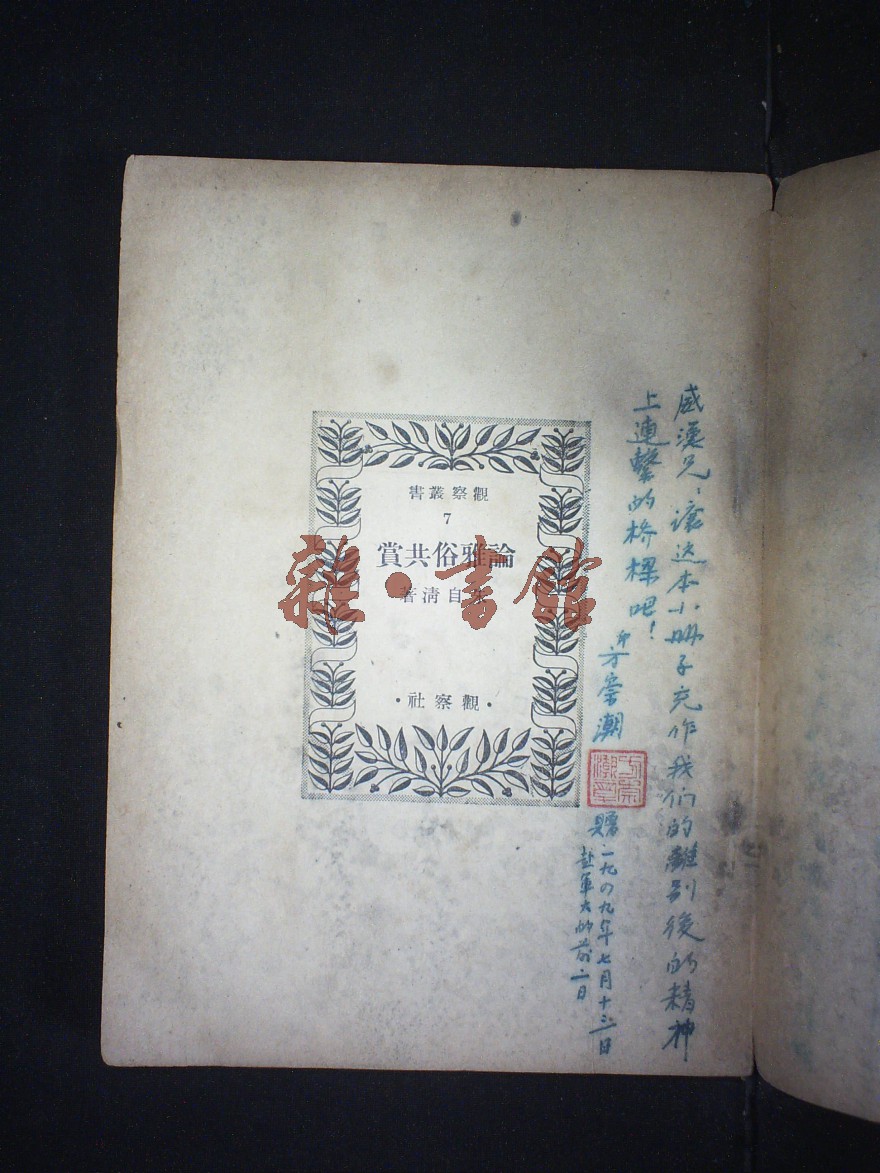 威漢兄，讓这本小册子充作我们的離别後的精神
上連繫的桥樑吧！
弟方崇潮
贈 一九四九年七月十三日
赴軍大的前二日
觀察叢書
7
論雅俗共賞
朱自清著
·觀察社·
雜·書館